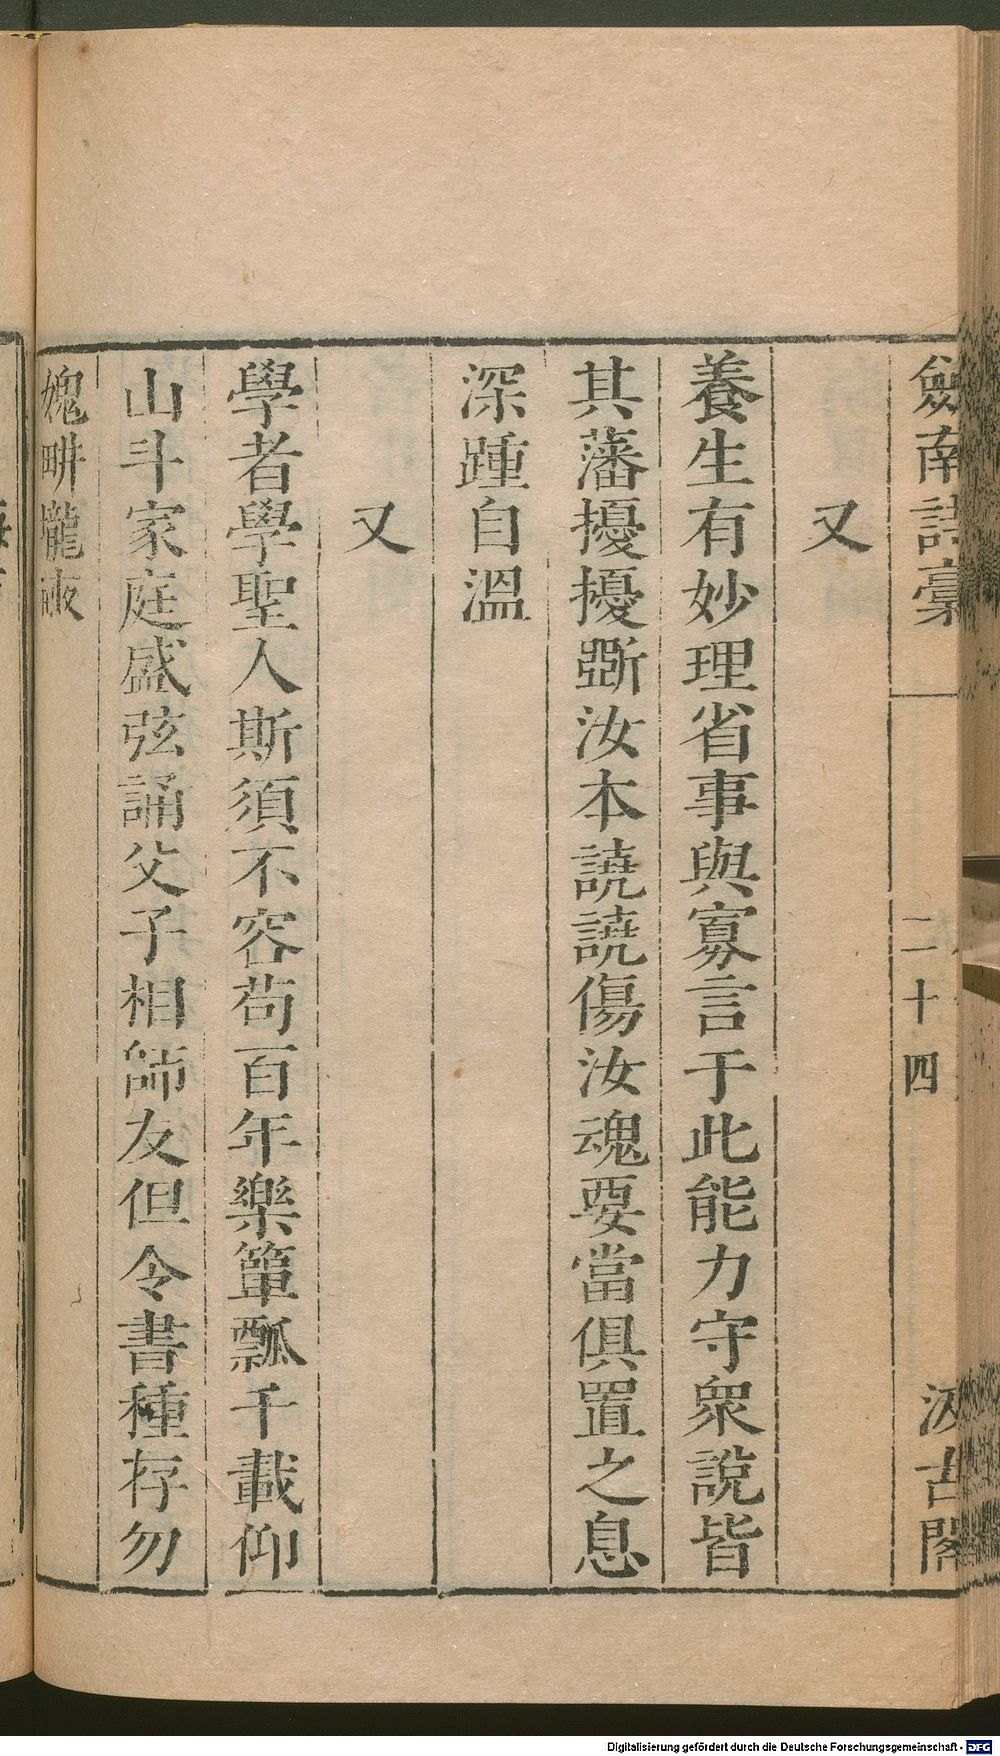 劍南詩稾
二十四
汲古閣
又
養生有妙理省事與寡言于此能力守衆說皆
其藩擾擾斵汝本譊譊傷汝魂要當俱置之息
深踵自溫
又
學者學聖人斯須不容苟百年樂簞瓢千載仰
山斗家庭盛弦誦父子相師友但令書種存勿
媿畊壠畝
Digitalisierung gefördert durch die Deutsche Forschungsgemeinschaft - DFG